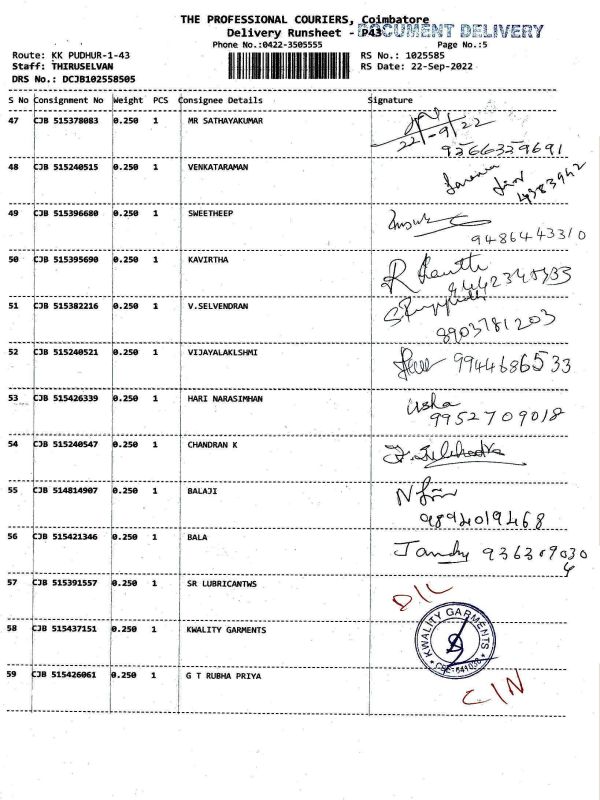 THE PROFESSIONAL COURIERS, Coimbatore
Delivery Runsheet - P43 DOCUMENT DELIVERY
Phone No.:0422-3505555 Page No.:5
Route: KK PUDHUR-1-43 RS No.: 1025585
Staff: THIRUSELVAN RS Date: 22-Sep-2022
DRS No.: DCJB102558505
S No Consignment No Weight PCS Consignee Details Signature
47 CJB 515378083 0.250 1 MR SATHAYAKUMAR
22/-9/22
9566359691
48 CJB 515240515 0.250 1 VENKATARAMAN
4383942
49 CJB 515396680 0.250 1 SWEETHEEP
9486443310
50 CJB 515395690 0.250 1 KAVIRTHA
51 CJB 515382216 0.250 1 V.SELVENDRAN
8903781203
52 CJB 515240521 0.250 1 VIJAYALAKLSHMI
9944686533
53 CJB 515426339 0.250 1 HARI NARASIMHAN usha
9952709018
54 CJB 515240547 0.250 1 CHANDRAN K
55 CJB 514814907 0.250 1 BALAJI
9894019468
56 CJB 515421346 0.250 1 BALA
57 CJB 515391557 0.250 1 SR LUBRICANTWS D/L
58 CJB 515437151 0.250 1 KWALITY GARMENTS KWALITY GARMENTS
59 CJB 515426061 0.250 1 G T RUBHA PRIYA C/N